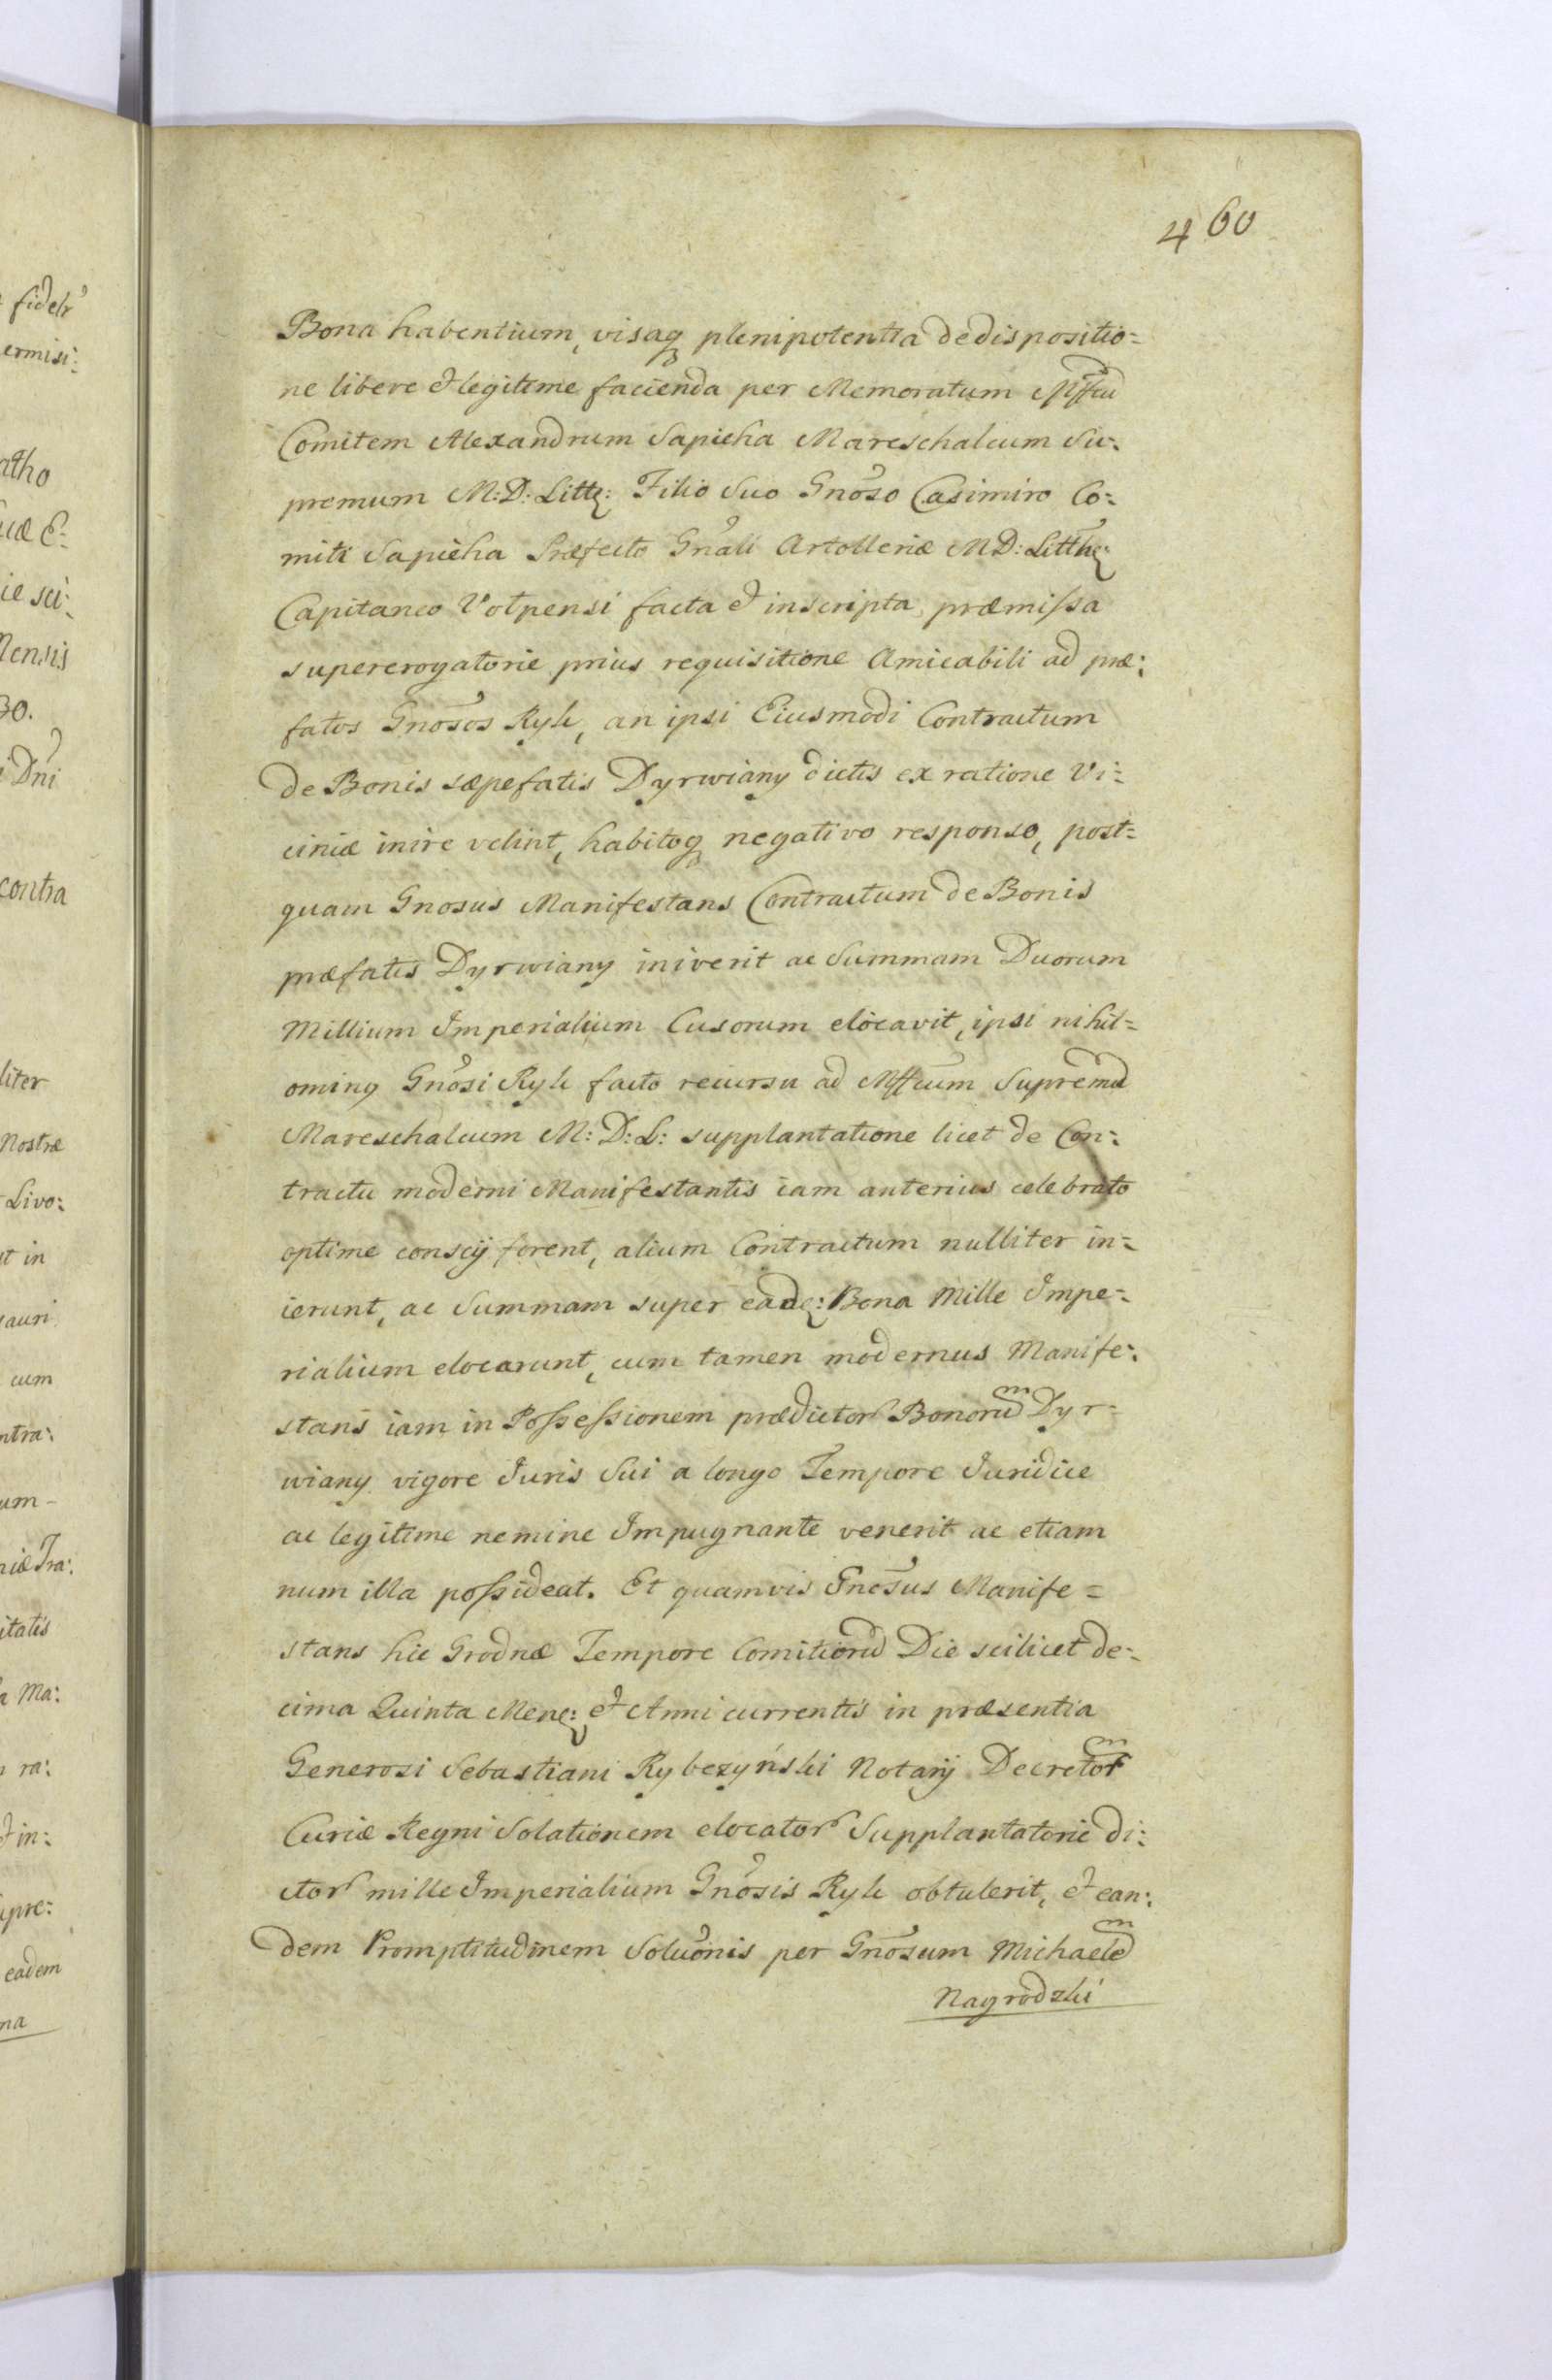 460
Bona habentium, visaq₃ plenipotentia de dispositio=
ne libere & legitime facienda per Memoratum Mffcu
Comitem Alexandrum Sapieha Mareschalcum Su:
premum M:D: Littę: Filio Suo Gnoso Casimiro Co:
miti Sapieha Præfecto Gnali Artolleriæ MD: Litthę:
Capitaneo Volpensi facta & inscripta, præmissa
supererogatorie prius requisitione Amicabili ad præ:
fatos Gnosos Ryk, an ipsi Eiusmodi Contractum
de Bonis sæpefatis Dyrwiany dictis ex ratione Vi=
ciniæ inire velint, habitoq₃ negativo responso, post=
quam Gnosus Manifestans Contractum de Bonis
præfatis Dyrwiany iniverit ac Summam Duorum
Millium Imperialium Cusorum elocavit, ipsi nihil=
ominq Gnosi Ryk facto recursu ad Mffcum Supremu
Mareschalcum M: D: L: supplantatione licet de Con:
tractu moderni Manifestantis iam anterius celebrato
optime conscij forent, alium Contractum nulliter in=
ierunt, ac Summam super eadę: Bona Mille Impe=
rialium elocarunt, cum tamen modernus Manife:
stans iam in Possessionem prædictor Bonorum Dyr=
wiany vigore Juris Sui a longo Tempore Juridice
ac legitime nemine Impugnante venerit ac etiam
num illa possideat. Et quamvis Gnosus Manife=
stans hic Grodnæ Tempore Comitioru Die scilicet de=
cima Quinta Menę: & Anni currentis in præsentia
Generosi Sebastiani Rybczyński Notarij Decretorm
Curiæ Regni Solationem elocator Supplantatorie di:
ctor mille Imperialium Gnosis Ryk obtulerit, & ean:
dem Promptitudinem Soluonis per Gnosum Michaelem
Nagrodzki
fidelr
ermisi:
atho
ie sci:
30.
Dni
contra
liter
Nostræ
Livo:
in
auri
cum
ntra:
um-
itatis
Ma:
ra:
& in:
upre:
eadem
na